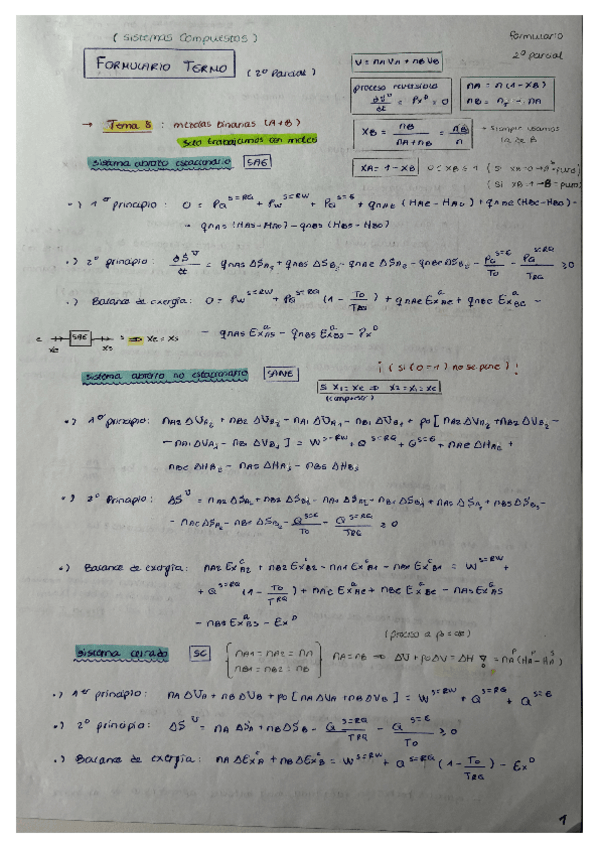 (sistemas compuestos)
Formulario
2º parcial
FORMULARIO TERMO (2º Parcial)
V = nA VA + nB VB
proceso reversible
dS^U/dt = Px^D = 0
nA = n(1-XB)
nB = nT - nA
→ Tema 8 : mezclas binarias (A+B)
solo trabajamos con moles
XB = nB/(nA+nB) = nB/n
→ siempre usamos
la de B
sistema abierto estacionario SAE
XA = 1-XB 0 ≤ XB ≤ 1 (si XB→0→A puro)
(si XB→1→B puro)
·) 1er principio: 0 = PQ^S=RQ + PW^S=RW + PQ^S=E + qnAe (HAe - HA0) + qnBe (HBe - HB0) -
- qnAs (HAs - HA0) - qnBs (HBs - HB0)
·) 2º principio: dS^U/dt = qnAs ΔSAs + qnBs ΔSBs - qnAe ΔSAe - qnBe ΔSBe - PQ^S=E/T0 - PQ^S=RQ/TRQ ≥ 0
·) Balance de exergía: 0 = PW^S=RW + PQ^S=RQ (1 - T0/TRQ) + qnAe ExAe^a + qnBe ExBe^a -
- qnAs ExAs^a - qnBs ExBs^a - Px^D
e SAE s ⇒ Xe = Xs
Xe Xs
sistema abierto no estacionario SANE
¡ (si (0-1) no se pone) !
si X1 = Xe ⇒ X2 = X1 = Xe
·) 1er principio: nA2 ΔUA2 + nB2 ΔUB2 - nA1 ΔUA1 - nB1 ΔUB1 + p0 [nA2 ΔVA2 + nB2 ΔVB2 -
- nA1 ΔVA1 - nB1 ΔVB1] = W^S=RW + Q^S=RQ + Q^S=E + nAe ΔHAe +
nBe ΔHBe - nAs ΔHAs - nBs ΔHBs
·) 2º Principio: ΔS^U = nA2 ΔSA2 + nB2 ΔSB2 - nA1 ΔSA1 - nB1 ΔSB1 + nAs ΔSAs + nBs ΔSBs -
- nAe ΔSAe - nBe ΔSBe - Q^S=E/T0 - Q^S=RQ/TRQ ≥ 0
·) Balance de exergía: nA2 ExA2^c + nB2 ExB2^c - nA1 ExA1^c - nB1 ExB1^c = W^S=RW +
+ Q^S=RQ (1 - T0/TRQ) + nAe ExAe^a + nBe ExBe^a - nAs ExAs^a
- nBs ExBs^a - Ex^D
(proceso a p0=cte)
sistema cerrado SC
nA1 = nA2 = nA
nB1 = nB2 = nB
·) 1er principio: nA ΔUA + nB ΔUB + p0 [nA ΔVA + nB ΔVB] = W^S=RW + Q^S=RQ + Q^S=E
·) 2º principio: ΔS^U = nA ΔSA + nB ΔSB - Q^S=RQ/TRQ - Q^S=E/T0 ≥ 0
·) Balance de exergía: nA ΔExA^c + nB ΔExB^c = W^S=RW + Q^S=RQ (1 - T0/TRQ) - Ex^D
1